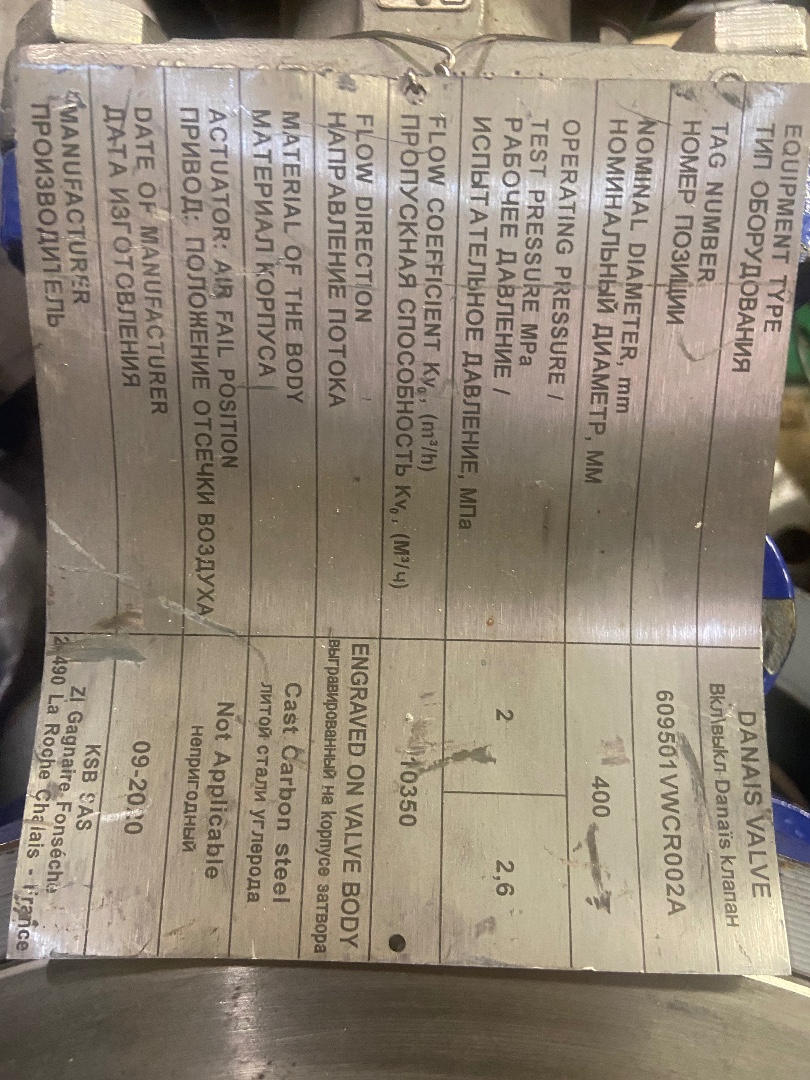 EQUIPMENT TYPE
ТИП ОБОРУДОВАНИЯ
DANAIS VALVE
Вкл\выкл Danaïs клапан
TAG NUMBER
НОМЕР ПОЗИЦИИ
609501VWCR002A
NOMINAL DIAMETER, mm
НОМИНАЛЬНЫЙ ДИАМЕТР, ММ
400
OPERATING PRESSURE /
TEST PRESSURE MPa
РАБОЧЕЕ ДАВЛЕНИЕ /
ИСПЫТАТЕЛЬНОЕ ДАВЛЕНИЕ, МПа
2
2,6
FLOW COEFFICIENT Kv₀, (m³/h)
ПРОПУСКНАЯ СПОСОБНОСТЬ Kv₀, (М³/ч)
10350
FLOW DIRECTION
НАПРАВЛЕНИЕ ПОТОКА
ENGRAVED ON VALVE BODY
выгравированный на корпусе затвора
MATERIAL OF THE BODY
МАТЕРИАЛ КОРПУСА
Cast Carbon steel
литой стали углерода
ACTUATOR: AIR FAIL POSITION
ПРИВОД: ПОЛОЖЕНИЕ ОТСЕЧКИ ВОЗДУХА
Not Applicable
непригодный
DATE OF MANUFACTURER
ДАТА ИЗГОТОВЛЕНИЯ
09-2020
MANUFACTURER
ПРОИЗВОДИТЕЛЬ
KSB SAS
ZI Gagnaire Fonsèche
490 La Roche Chalais - France